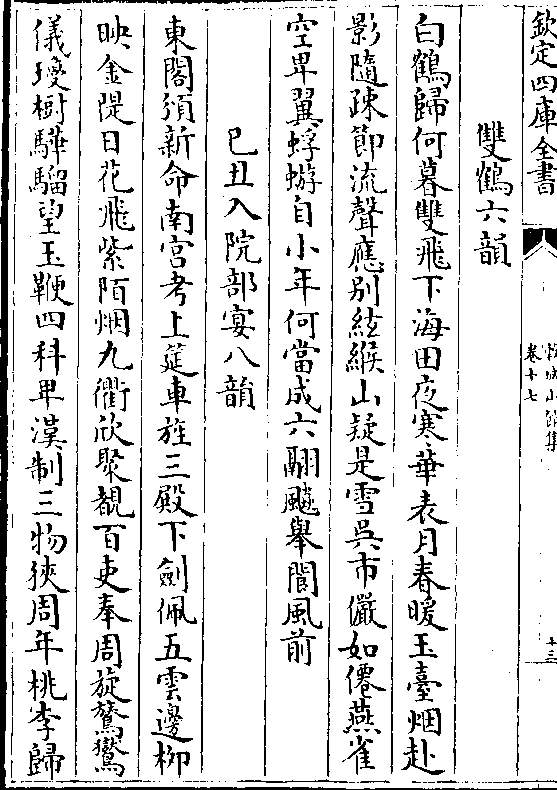 欽定四庫全書
卷十七
十三
雙鶴六韻
白鶴歸何暮雙飛下海田夜寒華表月春暖玉臺烟赴
影隨疎節流聲應別絃緱山疑是雪吳市儼如僊燕雀
空卑翼蜉蝣自小年何當成六翮飈舉閬風前
己丑入院部宴八韻
東閣須新命南宮考上筵車旌三殿下劍佩五雲邊柳
映金隄日花飛紫陌烟九衢欣聚覩百吏奉周旋鵞鸞
儀璦樹驊騮望玉鞭四科卑漢制三物狹周年桃李歸